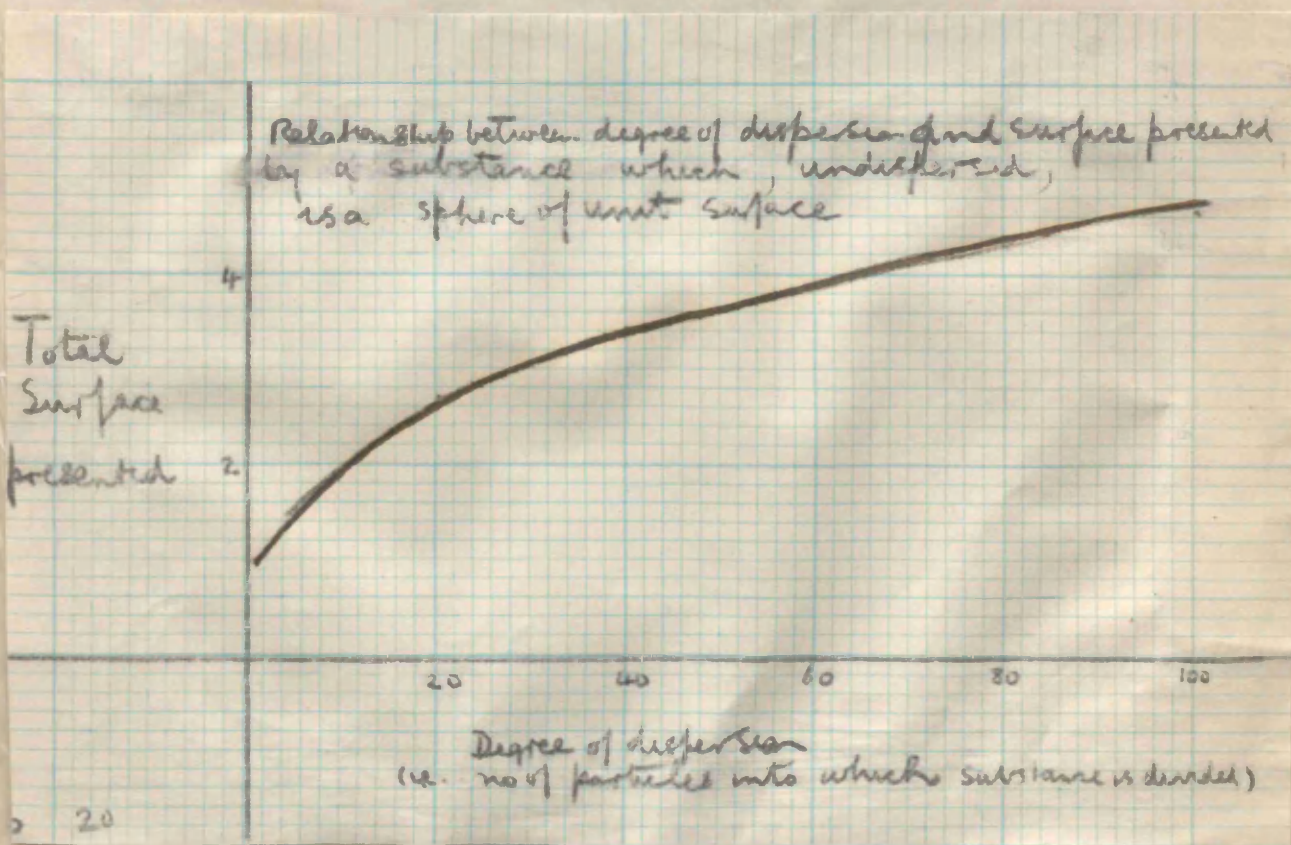 Relationship between degree of dispersion and surface presented
by a substance which, undispersed,
is a sphere of unit surface
4
Total
Surface
presented
2
20 40 60 80 100
Degree of dispersion
(i.e. no of particles into which substance is divided)
20